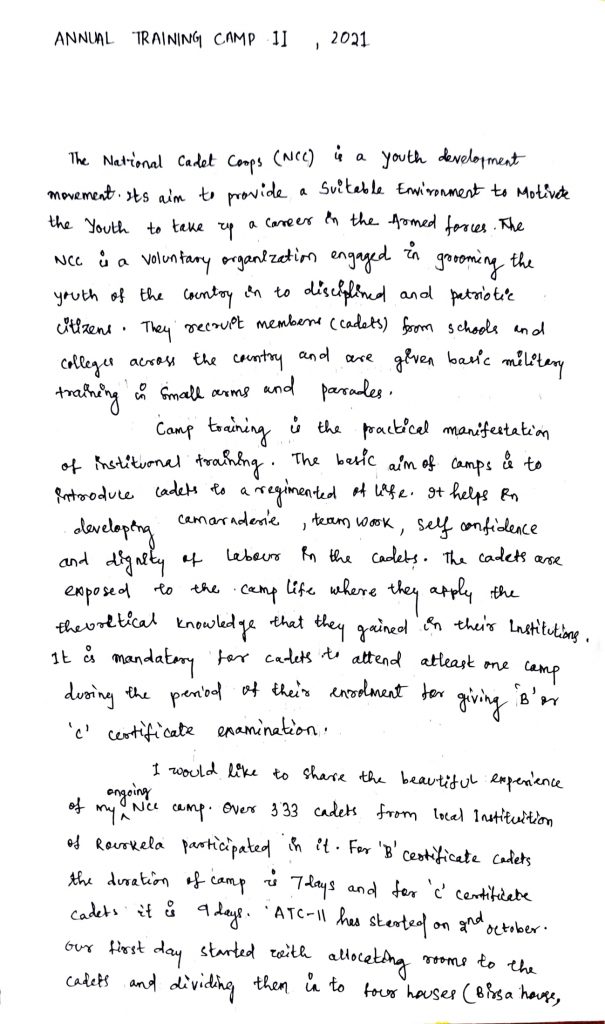 ANNUAL TRAINING CAMP II , 2021
The National Cadet Corps (NCC) is a youth development
movement. Its aim to provide a suitable Environment to Motivate
the Youth to take up a career in the Armed forces. The
NCC is a voluntary organization engaged in grooming the
youth of the country in to disciplined and patriotic
citizens. They recruit members (cadets) from schools and
colleges across the country and are given basic military
training in small arms and parades.
Camp training is the practical manifestation
of institional training. The basic aim of camps is to
introduce cadets to a regimented of life. It helps in
developing camaraderie, team work, self confidence
and dignity of labour in the cadets. The cadets are
exposed to the camp life where they apply the
theoretical knowledge that they gained in their Institutions.
It is mandatory for cadets to attend atleast one camp
during the period of their enrolment for giving 'B' or
'C' certificate examination.
I would like to share the beautiful experience
of my ongoing NCC camp. Over 333 cadets from local Instituition
of Rourkela participated in it. For 'B' certificate cadets
the duration of camp is 7 days and for 'C' certificate
cadets it is 9 days. ATC-II has started on 2nd october.
Our first day started with allocating rooms to the
cadets and dividing them in to four houses (Birsa house,